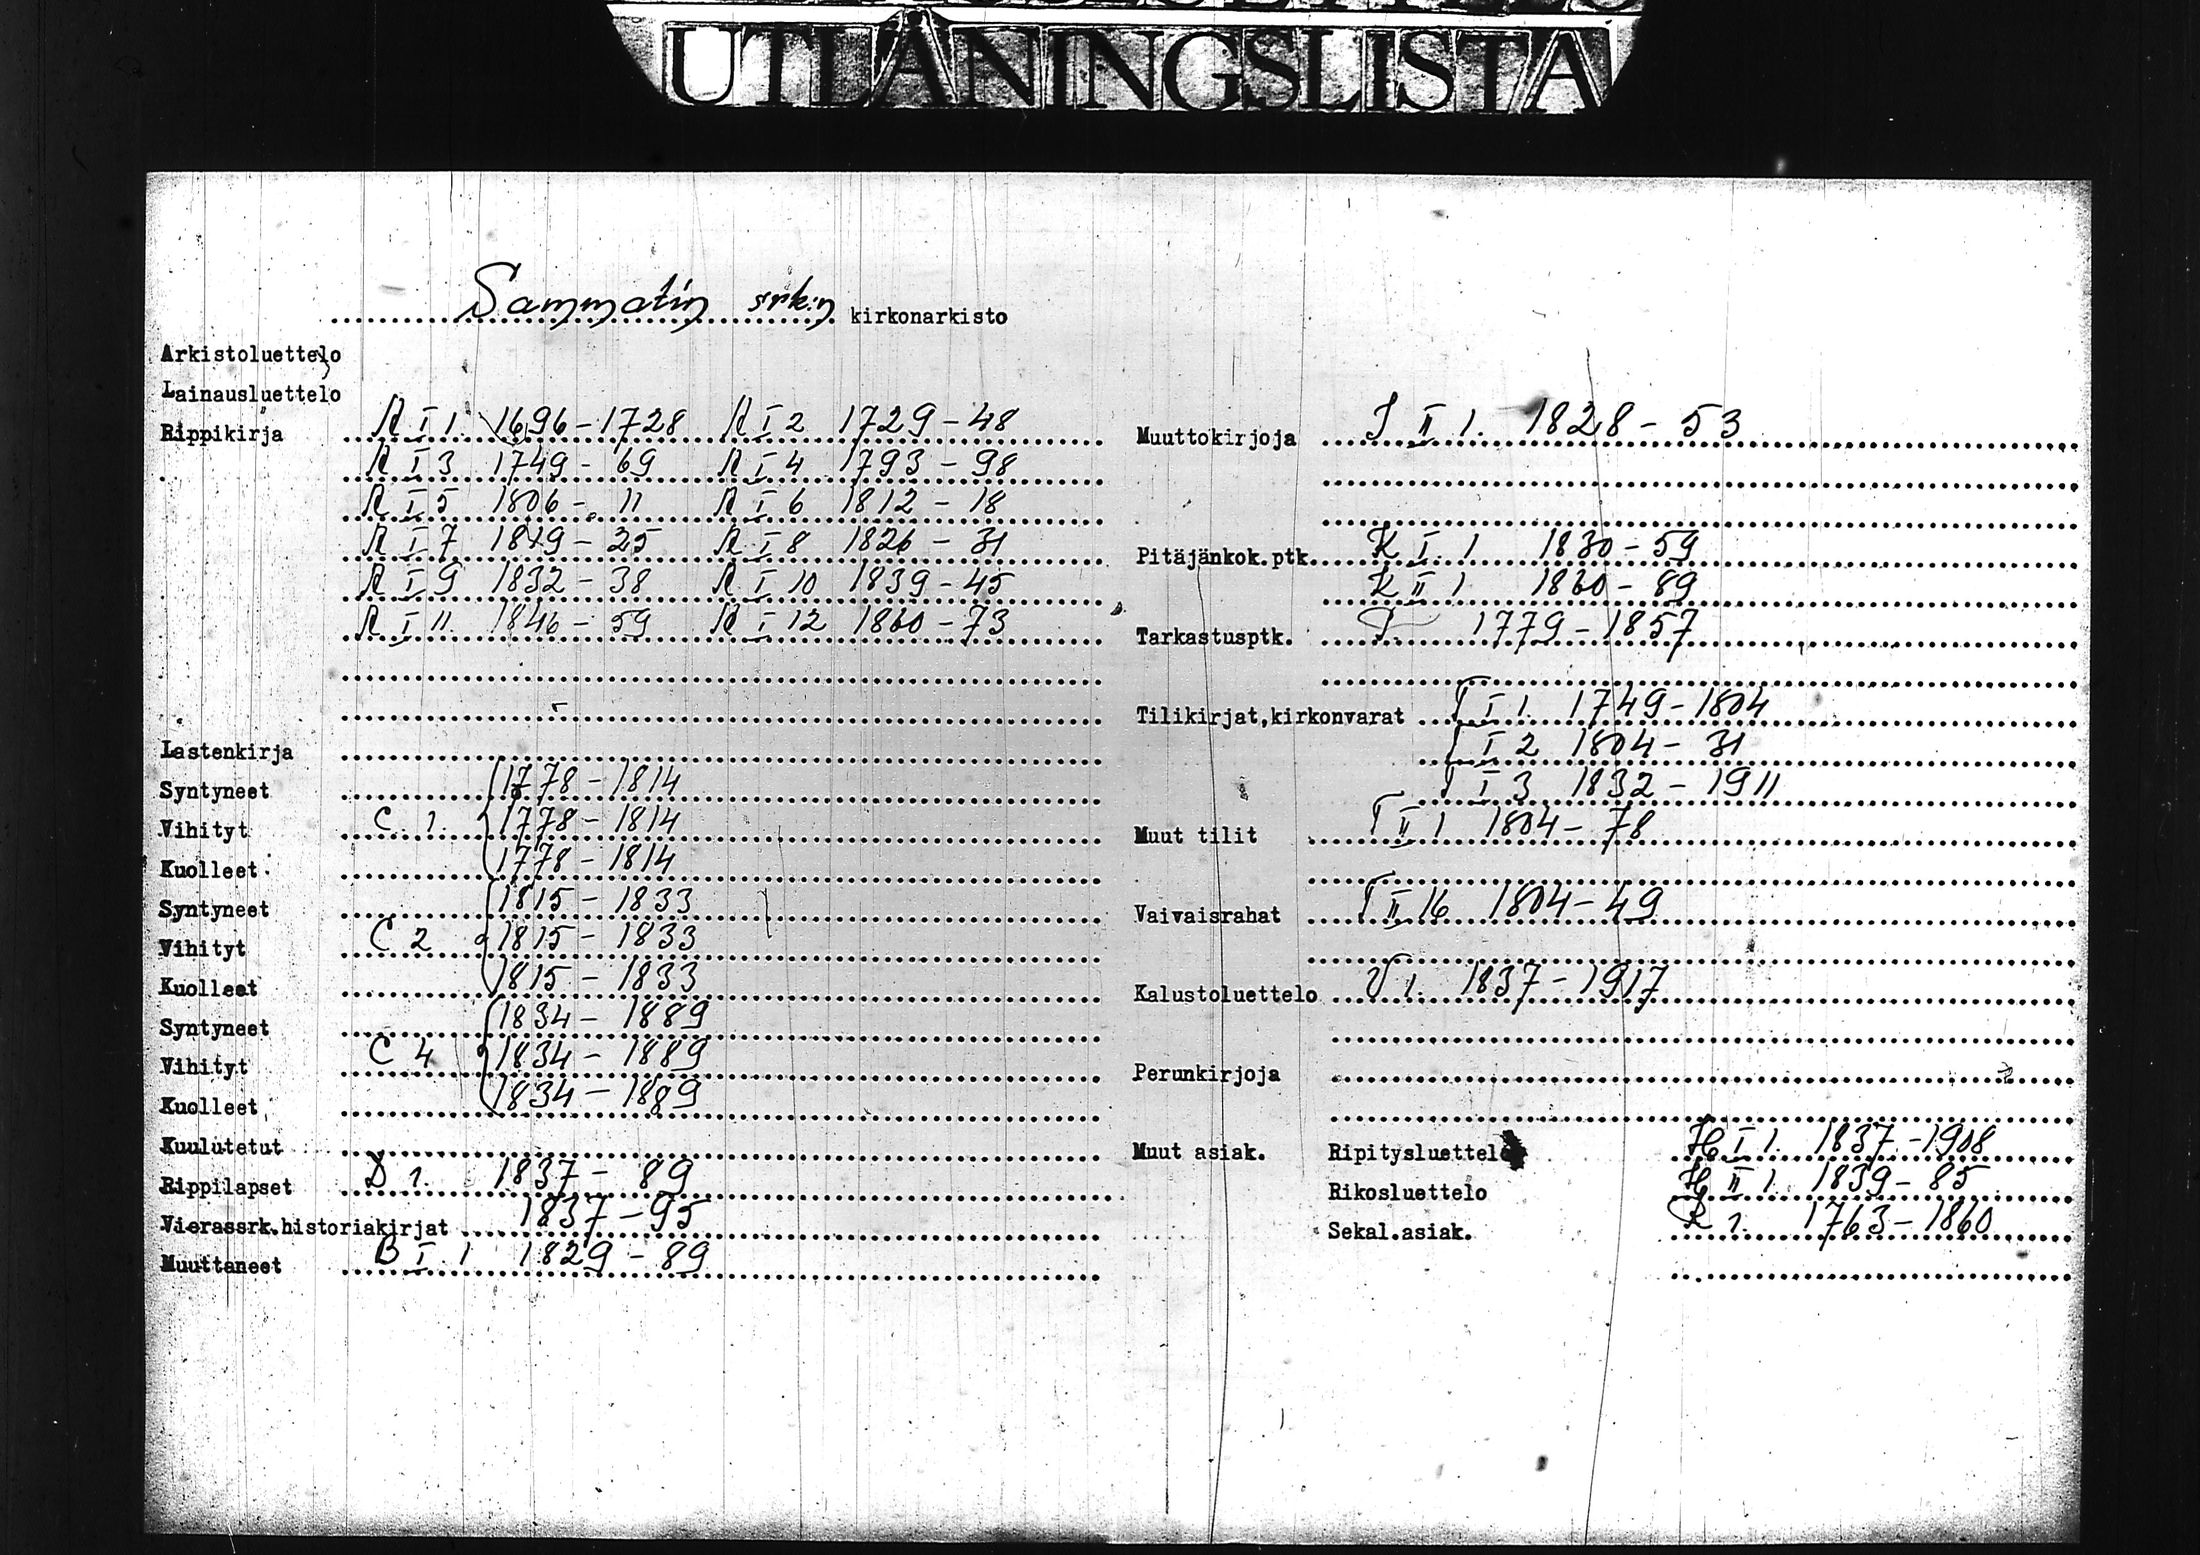 UTLÅNINGSLISTA
Sammatin srk:n kirkonarkisto
Arkistoluettelo
Lainausluettelo
Rippikirja R I 1 1696-1728 R I 2 1729-48
R I 3 1749-69 R I 4 1793-98
R I 5 1806-11 R I 6 1812-18
R I 7 1819-25 R I 8 1826-31
R I 9 1832-38 R I 10 1839-45
R I 11 1846-59 R I 12 1860-73
Lastenkirja
Syntyneet 1778-1814
Vihityt C 1. 1778-1814
Kuolleet 1778-1814
Syntyneet 1815-1833
Vihityt C 2 1815-1833
Kuolleet 1815-1833
Syntyneet 1834-1889
Vihityt C 4 1834-1889
Kuolleet 1834-1889
Kuulutetut
Rippilapset D 1. 1837-89
Vierassrk.historiakirjat 1837-95
Muuttaneet B I 1 1829-89
Muuttokirjoja J II 1. 1828-53
Pitäjänkok.ptk. K I 1 1830-59
K II 1 1860-89
Tarkastusptk. 1779-1857
Tilikirjat,kirkonvarat T I 1. 1749-1804
T I 2 1804-31
T I 3 1832-1911
Muut tilit T II 1 1804-78
Vaivaisrahat T II 16 1804-49
Kalustoluettelo V 1. 1837-1917
Perunkirjoja
Muut asiak. Ripitysluettelo H I 1. 1837-1908
Rikosluettelo H II 1 1839-85
Sekal.asiak. 1. 1763-1860